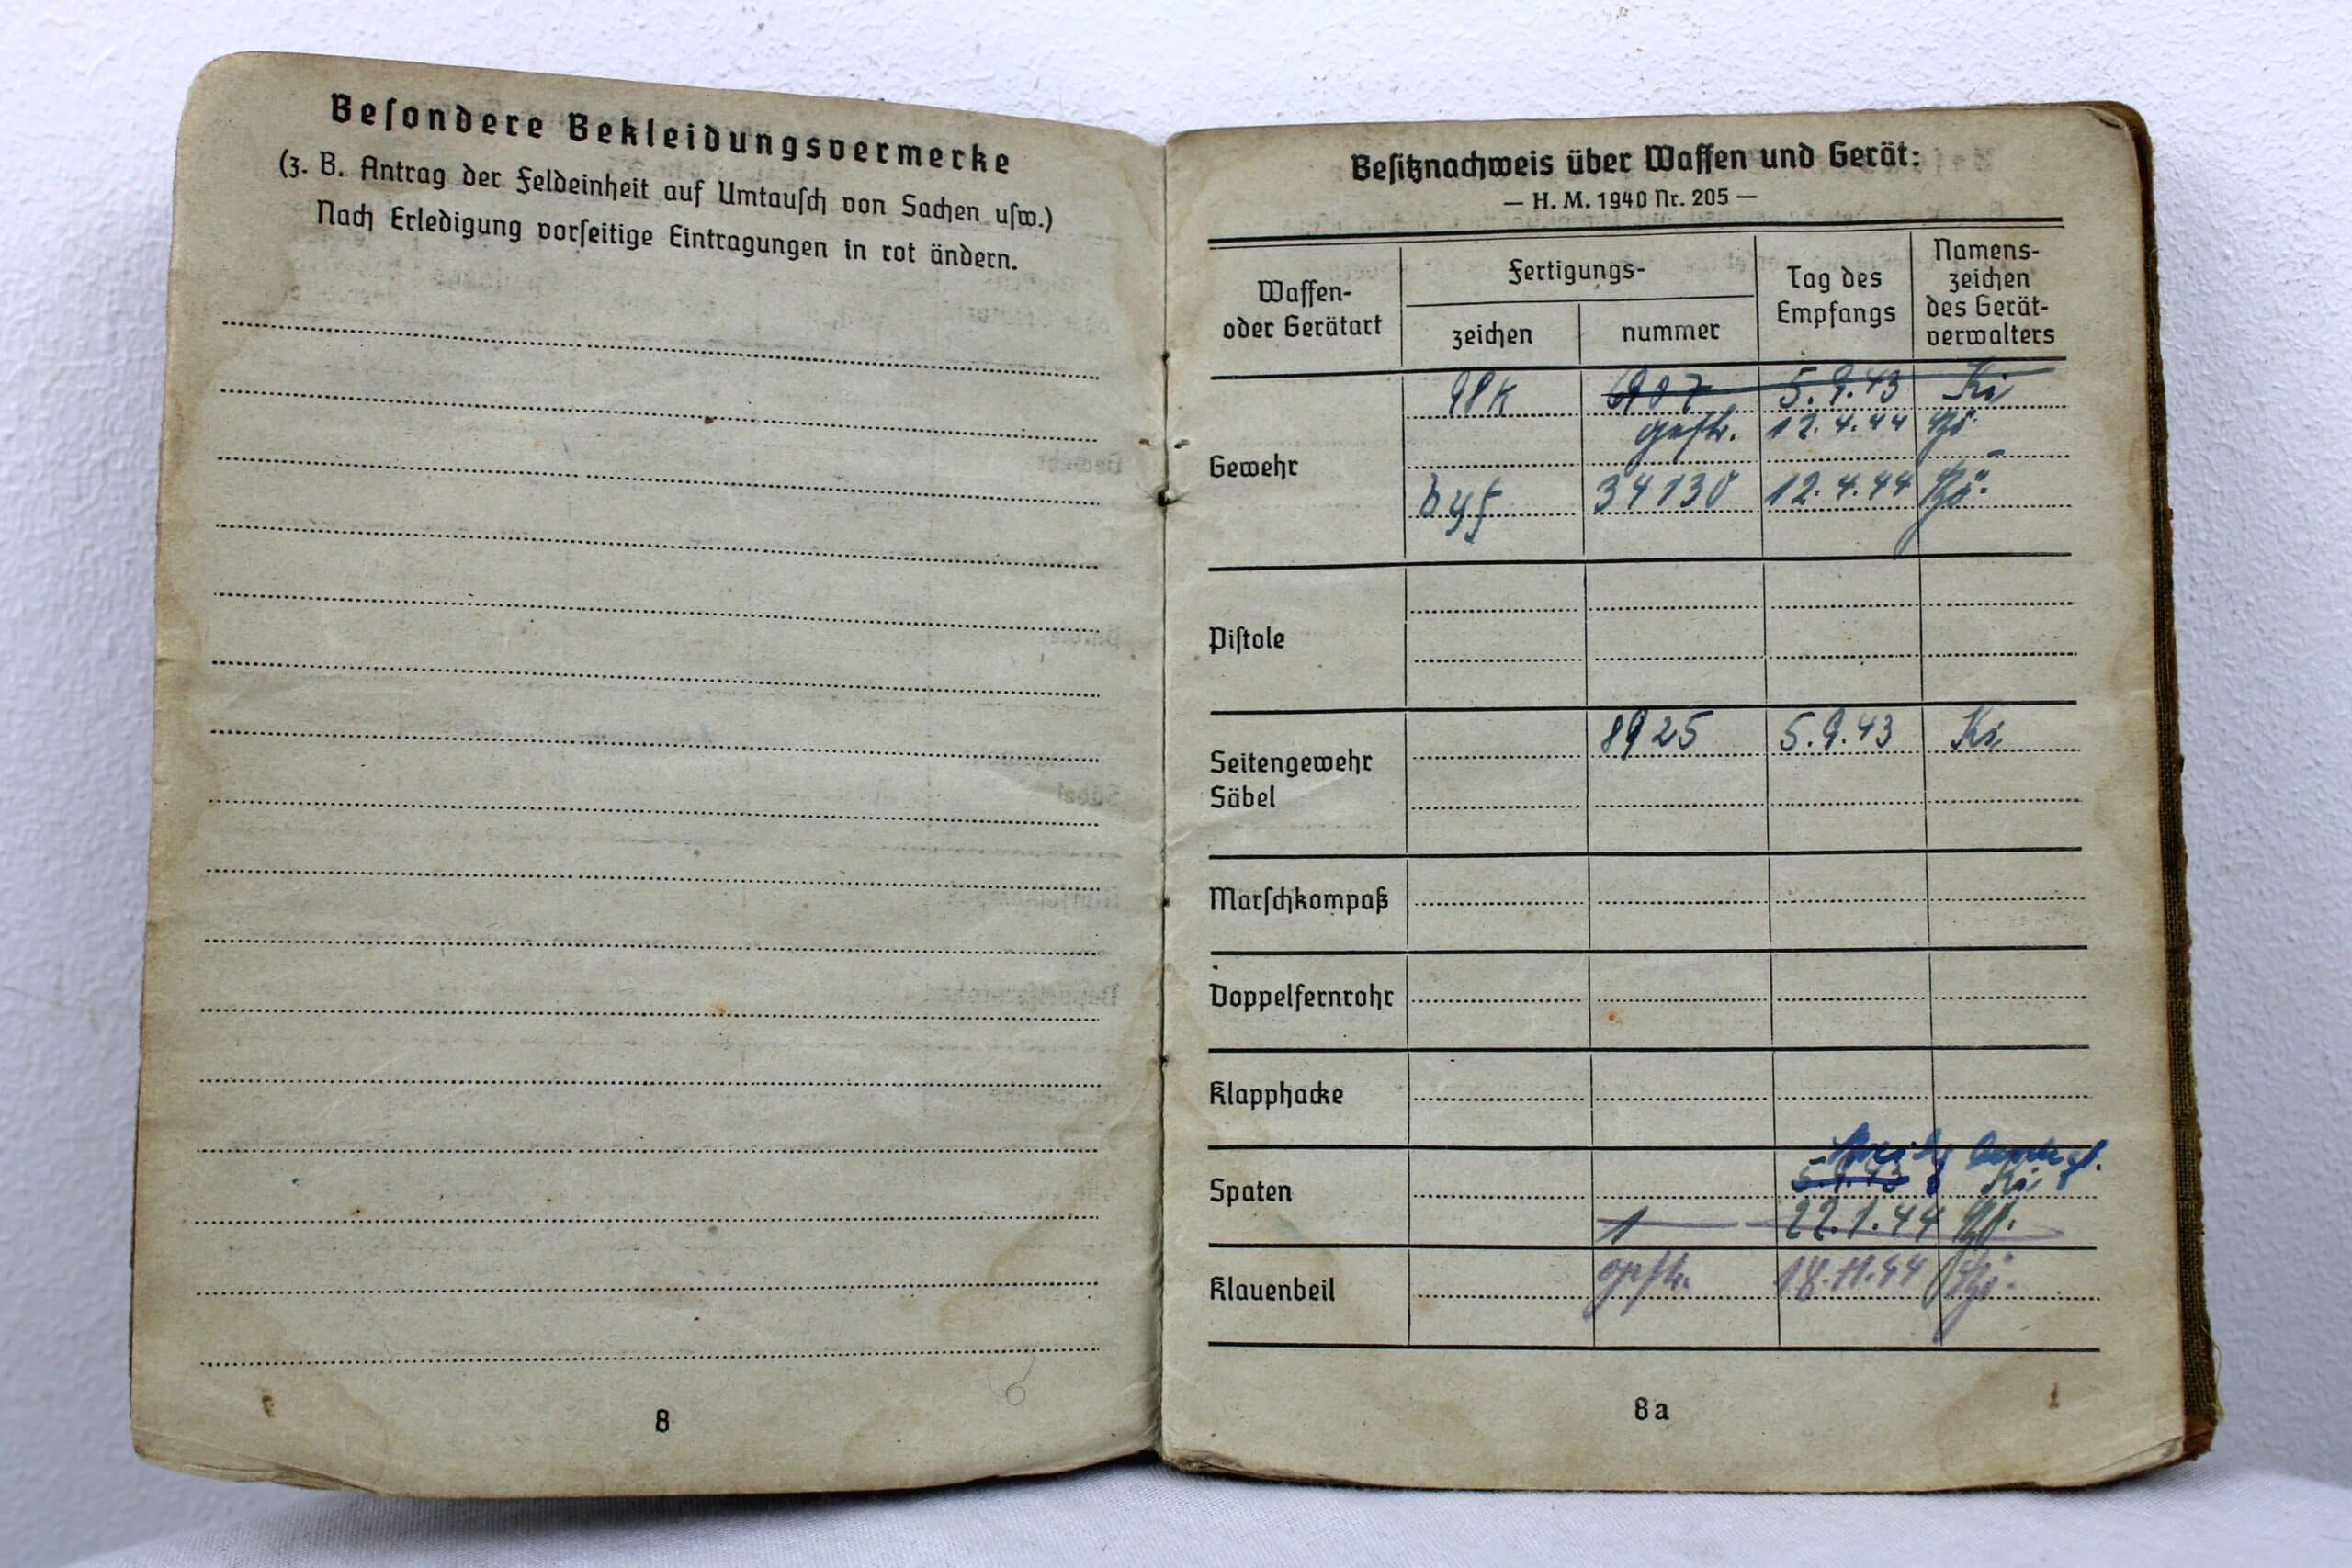 Besondere Bekleidungsvermerke
(z. B. Antrag der Feldeinheit auf Umtausch von Sachen usw.)
Nach Erledigung vorseitige Eintragungen in rot ändern.
8
Besitznachweis über Waffen und Gerät:
— H. M. 1940 Nr. 205 —
Waffen- oder Gerätart
Fertigungs-
zeichen
nummer
Tag des Empfangs
Namens-zeichen des Gerät-verwalters
Gewehr
98k 5.9.43 Ki
gestr. 12.4.44
byf 34130 12.4.44
Pistole
Seitengewehr
Säbel
8925 5.9.43 Ki
Marschkompaß
Doppelfernrohr
Klapphacke
Spaten
5.9.43 Ki
1 22.1.44
Klauenbeil
gestr. 18.11.44
8a